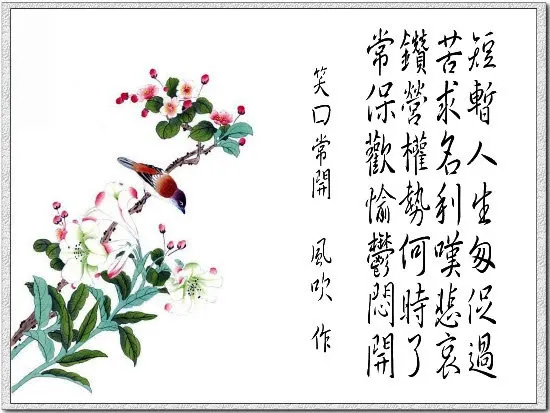 短暫人生匆促過
苦求名利嘆悲哀
鑽營權勢何時了
常保歡愉鬱悶開
笑口常開 風吹 作